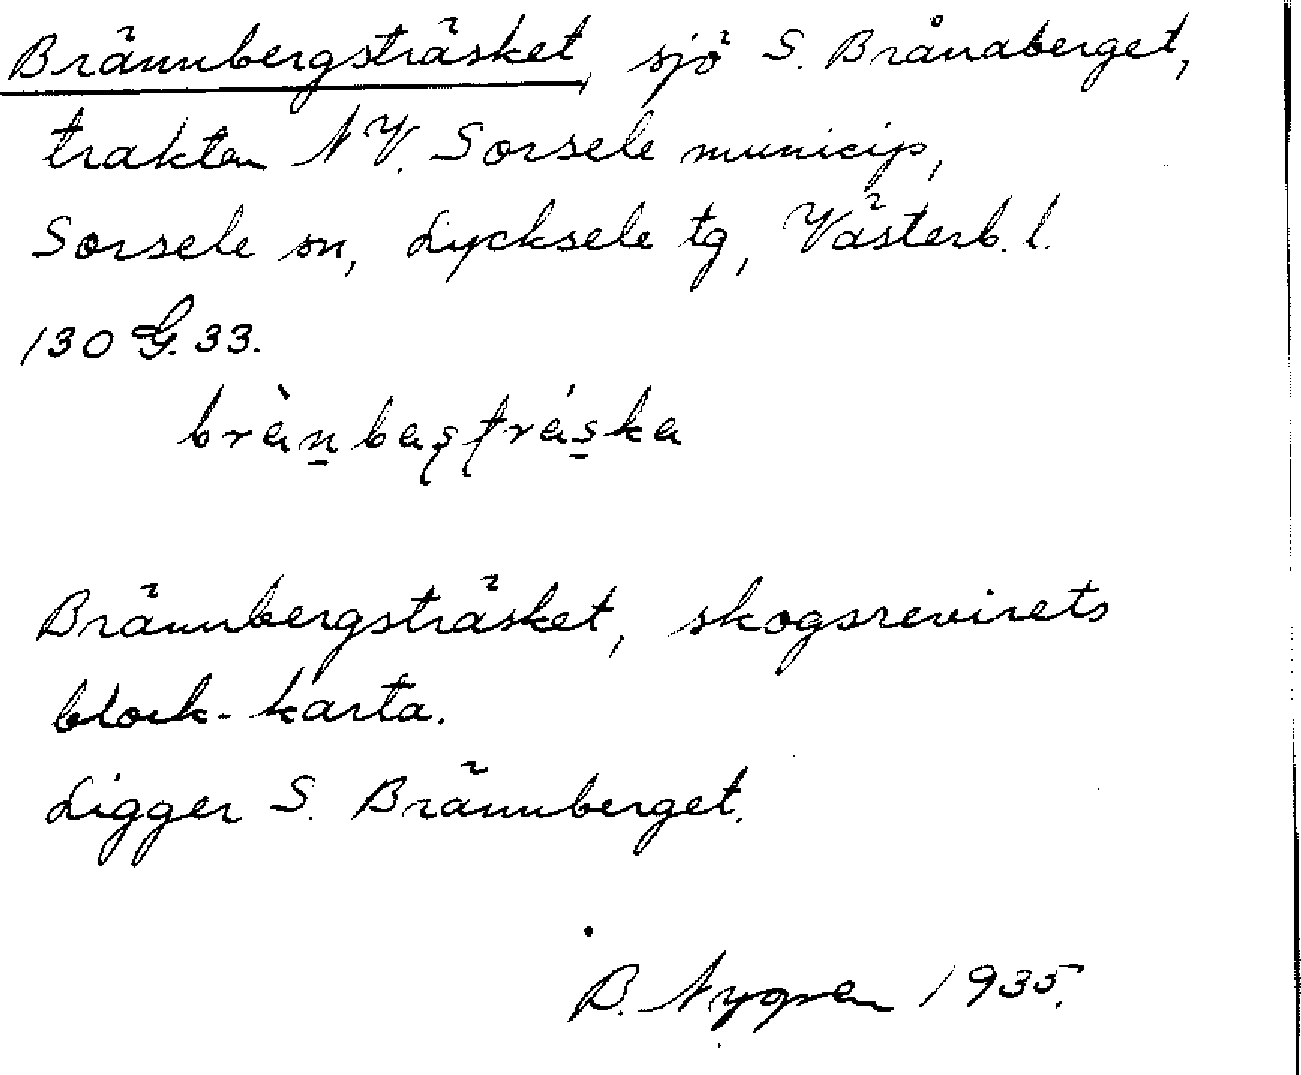 Brännbergsträsket, sjö S. Brånaberget,
trakten NV. Sorsele municip,
Sorsele sn, Lycksele tg, Västerb. l.
130 G. 33.
brànbaʂʈráska
Brännbergsträsket, skogsrevirets
block-karta.
Ligger S. Brännberget.
B. Nygren 1935.